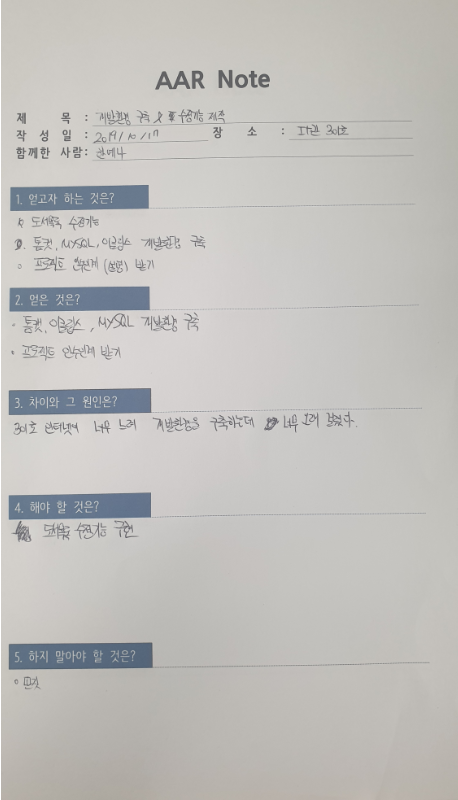 AAR Note
제 목 : 개발환경 구축 & 수정기능 제작
작 성 일 : 2019/10/17 장 소 : IT관 301호
함께한 사람:
1. 얻고자 하는 것은?
수정기능
톰캣, MySQL, 이클립스 개발환경 구축
프로젝트 인수인계 (설명) 받기
2. 얻은 것은?
톰캣, 이클립스, MySQL 개발환경 구축
프로젝트 인수인계 받기
3. 차이와 그 원인은?
301호 인터넷이 너무 느려 개발환경을 구축하는데 너무 오래 걸렸다.
4. 해야 할 것은?
수정기능 구현
5. 하지 말아야 할 것은?
딴짓